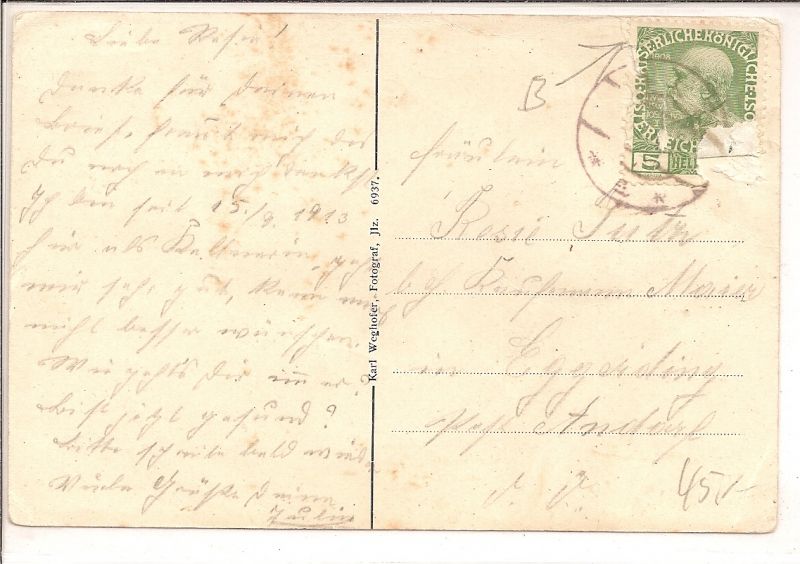 Liebe Resie!
Danke für Deinen
Brief, freut mich daß
Du noch an mich denkst
Ich bin seit 15./8. 1913
hier als Kellnerin, geht
mir sehr gut, kann
mich besser wünschen
Wie geht's Dir immer?
Bist jetzt gesund?
Bitte schreibe bald
Viele Grüße Deine
Karl Weghofer, Fotograf, Jlz. 6937.
B
KAISERLICHE KÖNIGLICHE ÖSTERREICH
1908
5
HELLER
Fräulein
Resie
Kaufmann
in Eggerding
Post Andorf
45,-